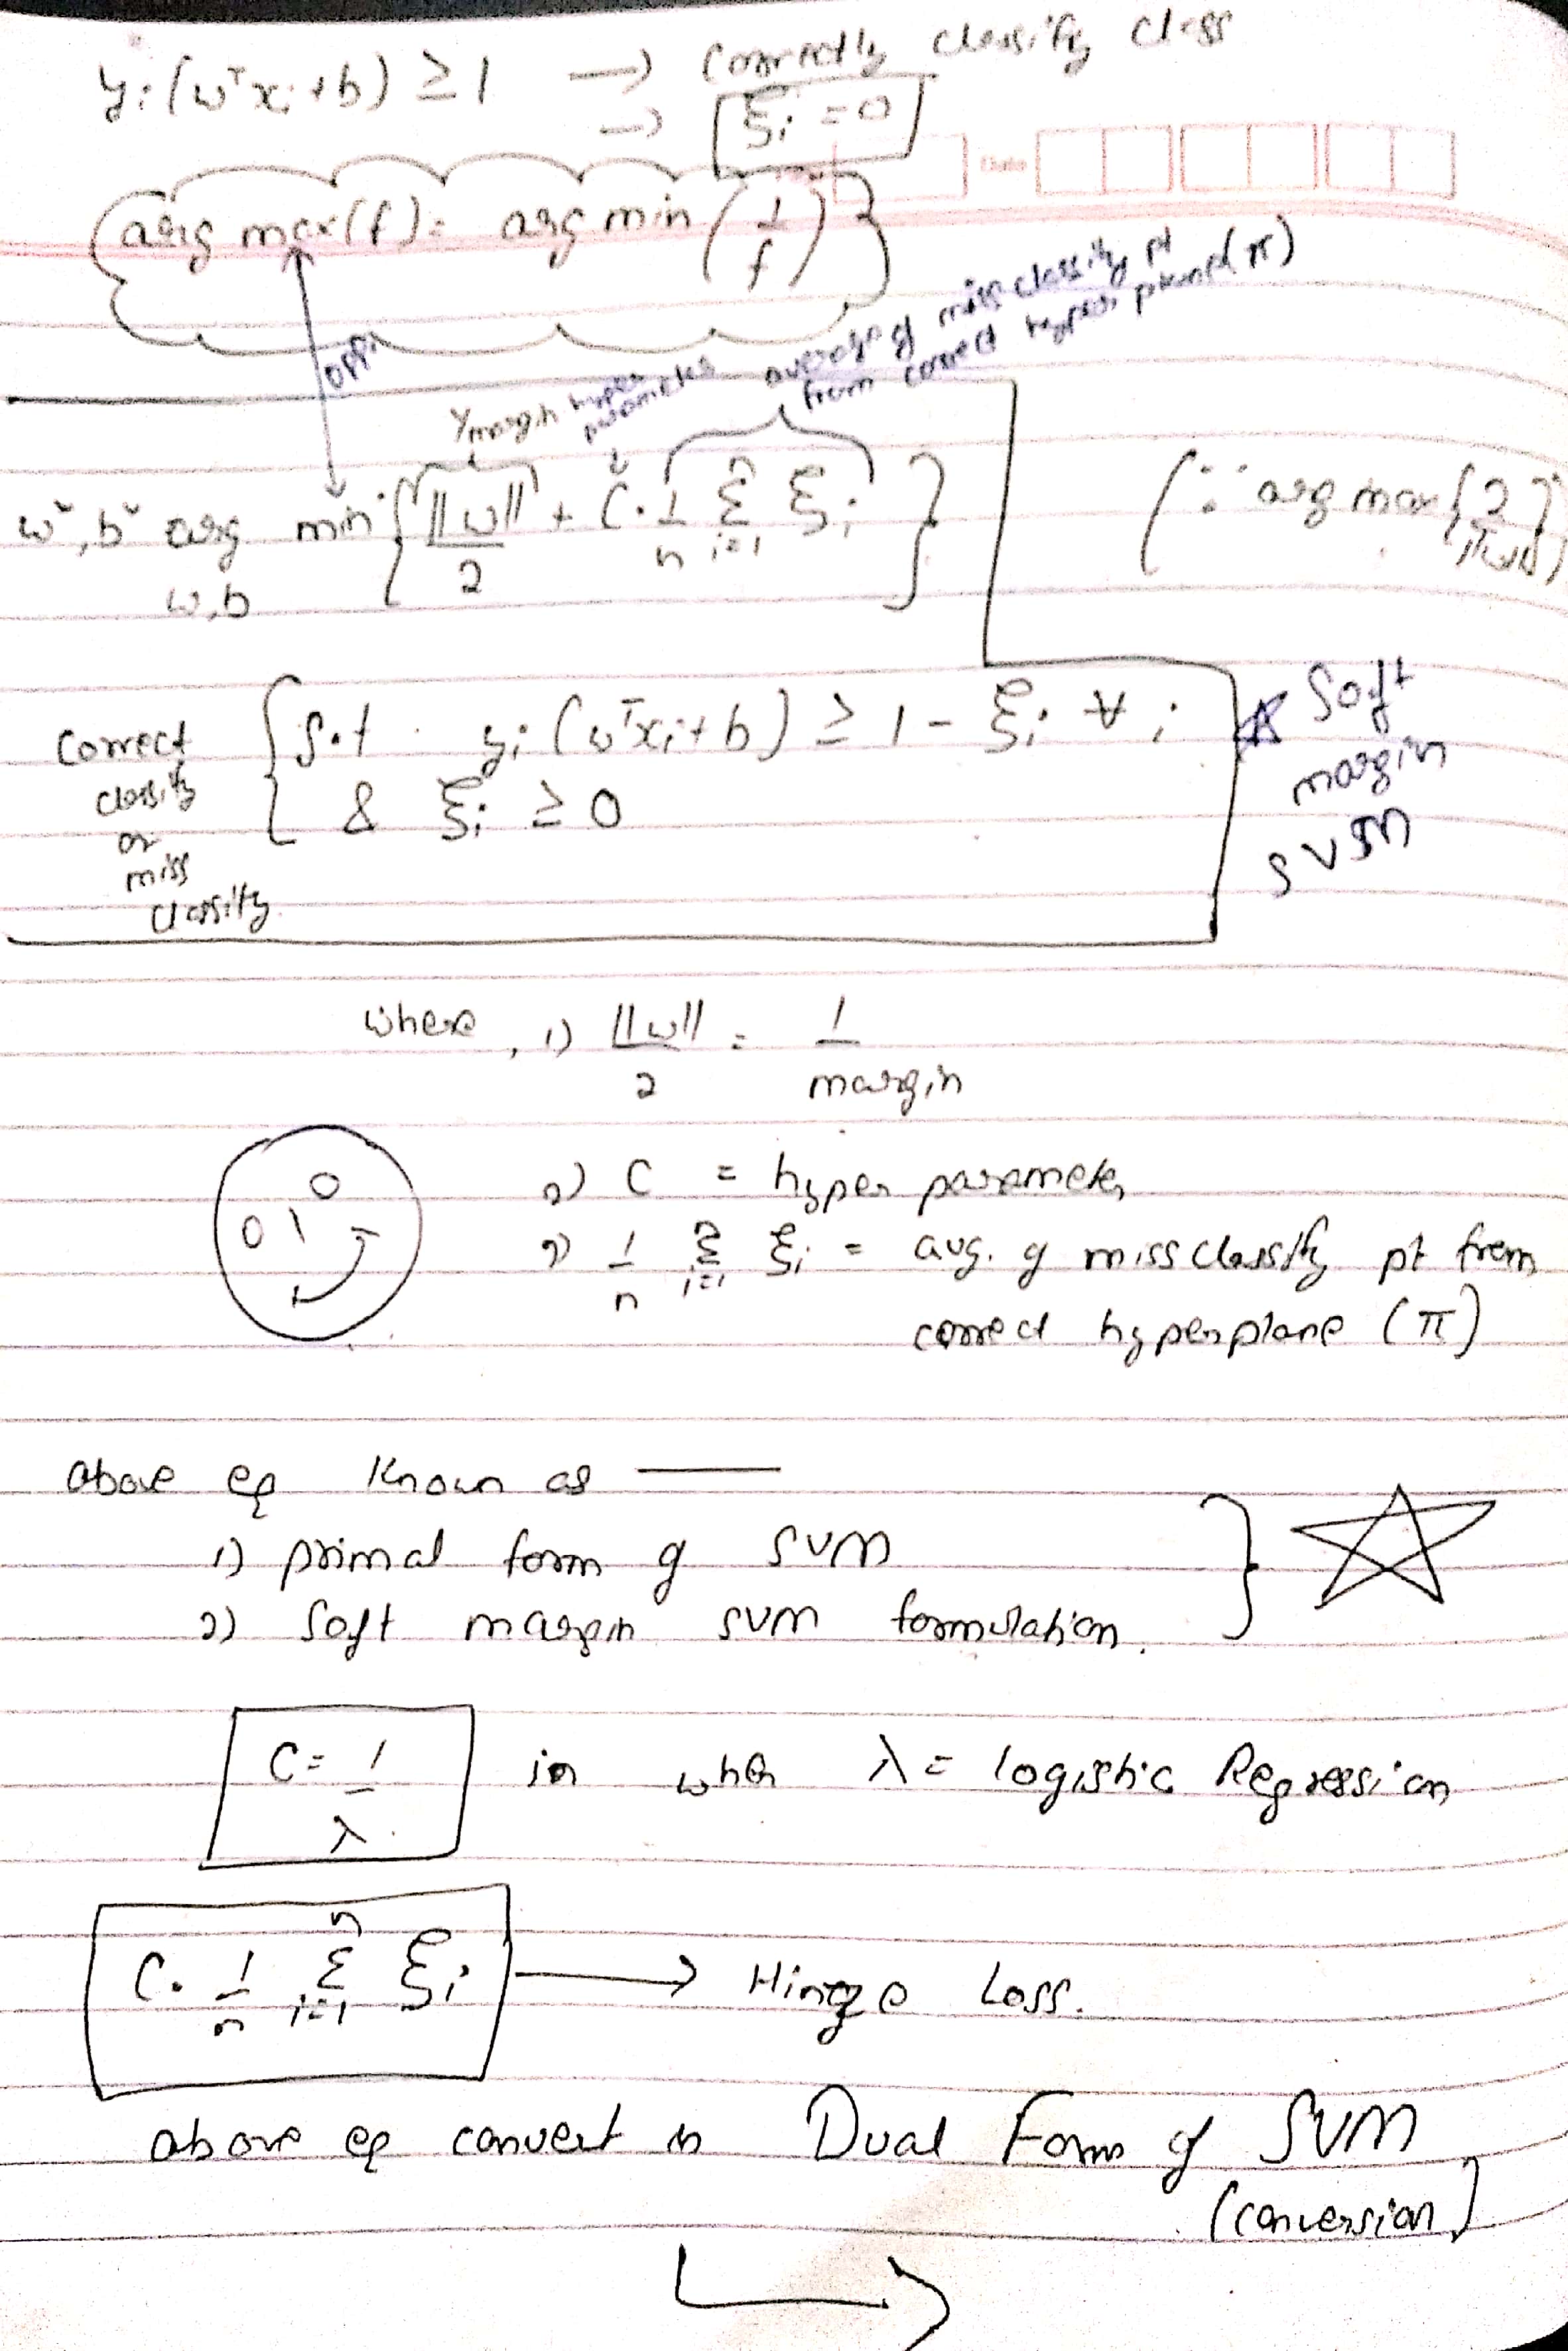 yi(wᵀxi+b) ≥ 1 → correctly classify class
→ ξi = 0
Date
arg max(f) = arg min (1/f)
opp
1/margin hyper parameter average of miss classify pt from correct hyper plane (π)
w*, b* arg min w,b { ||w||/2 + C. 1/n Σ(i=1 to n) ξi } (∵ arg max {2/||w||})
Correct classify or miss classify { S.t yi(wᵀxi+b) ≥ 1 - ξi ∀ i
& ξi ≥ 0
☆ Soft margin SVM
where, 1) ||w||/2 = 1/margin
2) C = hyper parameter
3) 1/n Σ(i=1 to n) ξi = avg. of miss classify pt from
correct hyperplane (π)
above eq known as —
1) primal form of SVM
2) Soft margin SVM formulation.
C = 1/λ in when λ = logistic Regression
C. 1/n Σ(i=1 to n) ξi → Hinge Loss.
above eq convert in Dual Form of SVM
(conversion)